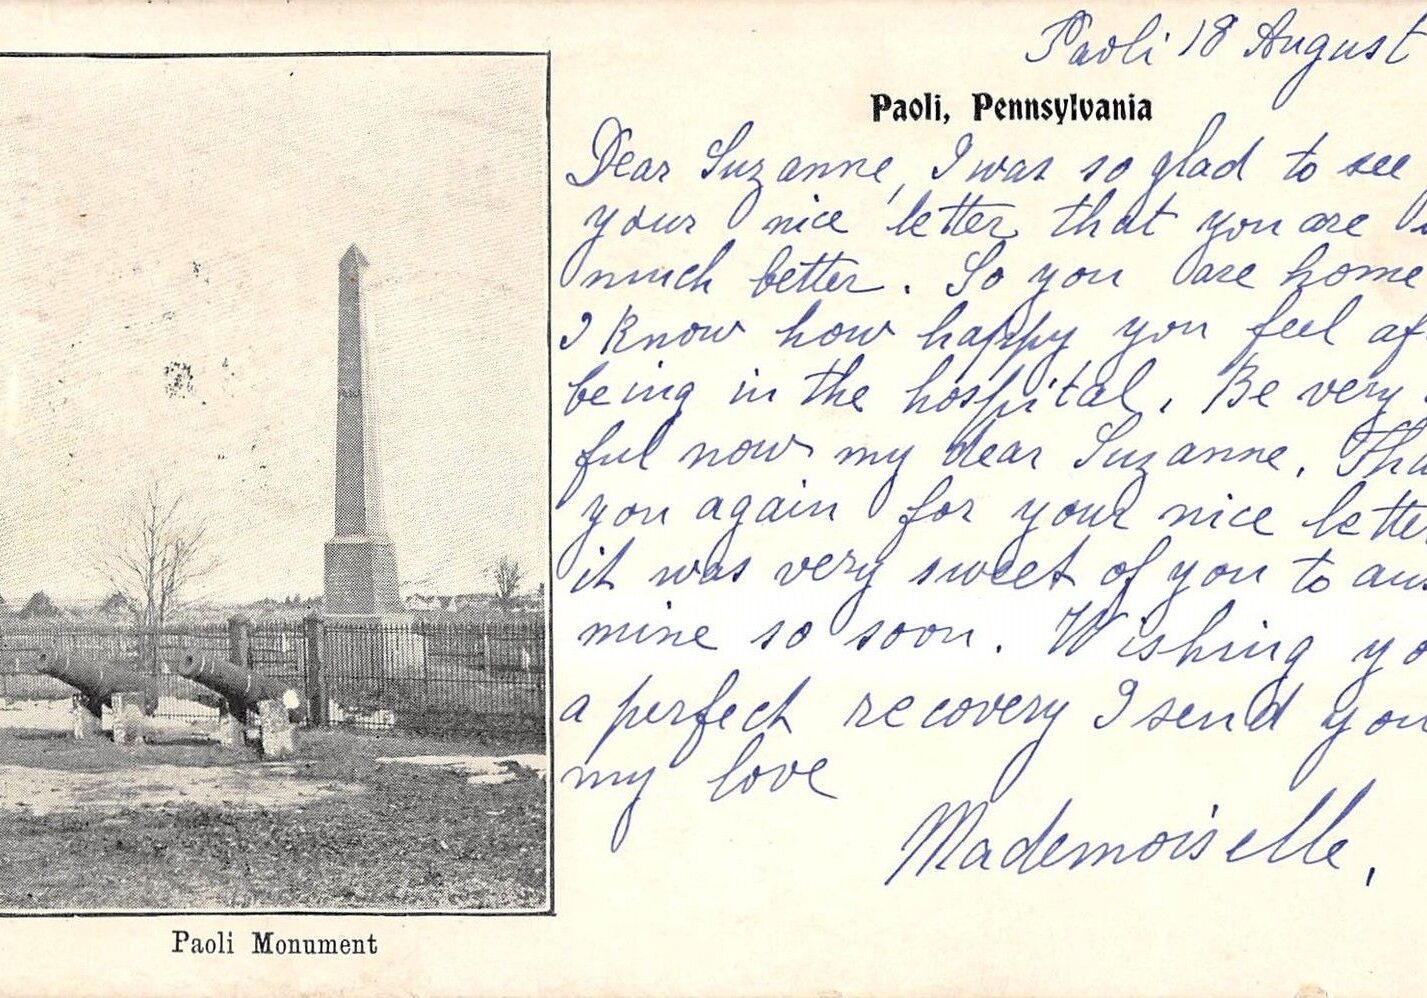 Paoli 18 August
Paoli, Pennsylvania
Dear Suzanne, I was so glad to see
your nice letter that you are
much better. So you are home
I know how happy you feel af
being in the hospital. Be very
ful now my dear Suzanne. Tha
you again for your nice lette
it was very sweet of you to ans
mine so soon. Wishing yo
a perfect recovery I send you
my love
Mademoiselle,
Paoli Monument